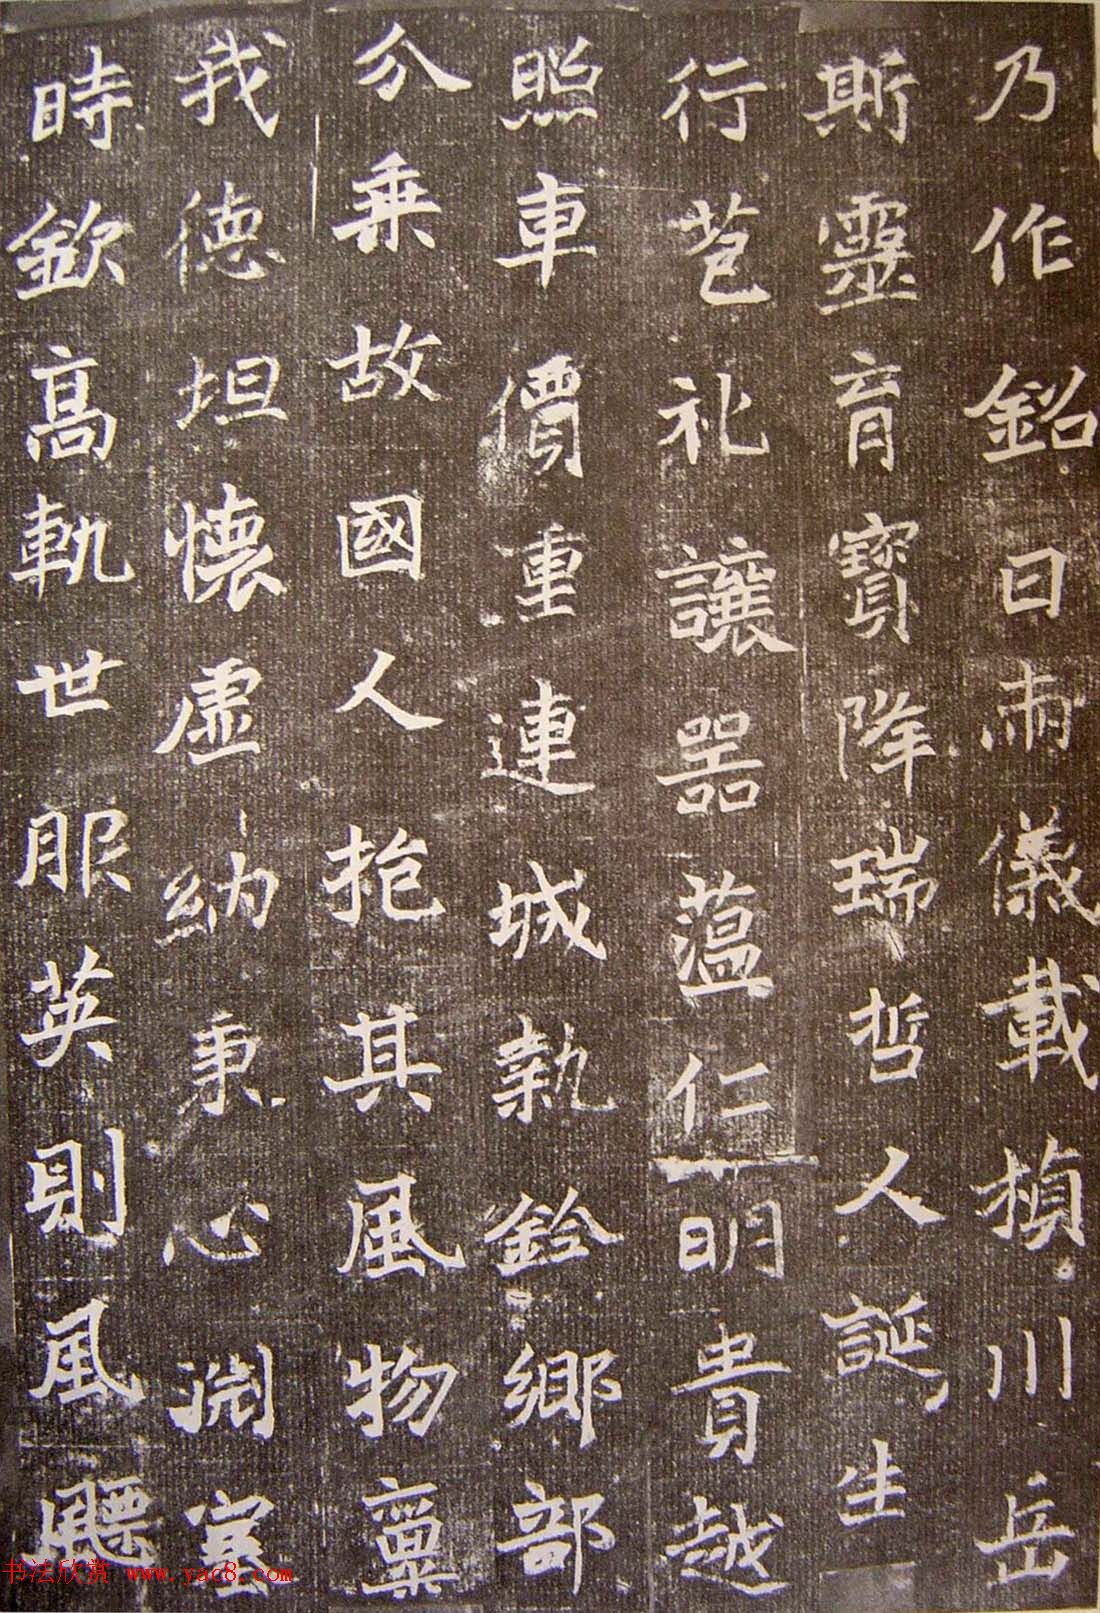 乃作銘曰兩儀載楨川岳
斯靈育寶降瑞哲人誕生
行苞礼讓器薀仁明貴越
照車價重連城執鈐鄉部
分乘故國人抱其風物稟
我德坦懷虛幼秉心淵塞
時欽高軌世服英則風飃
书法欣赏 www.yac8.com